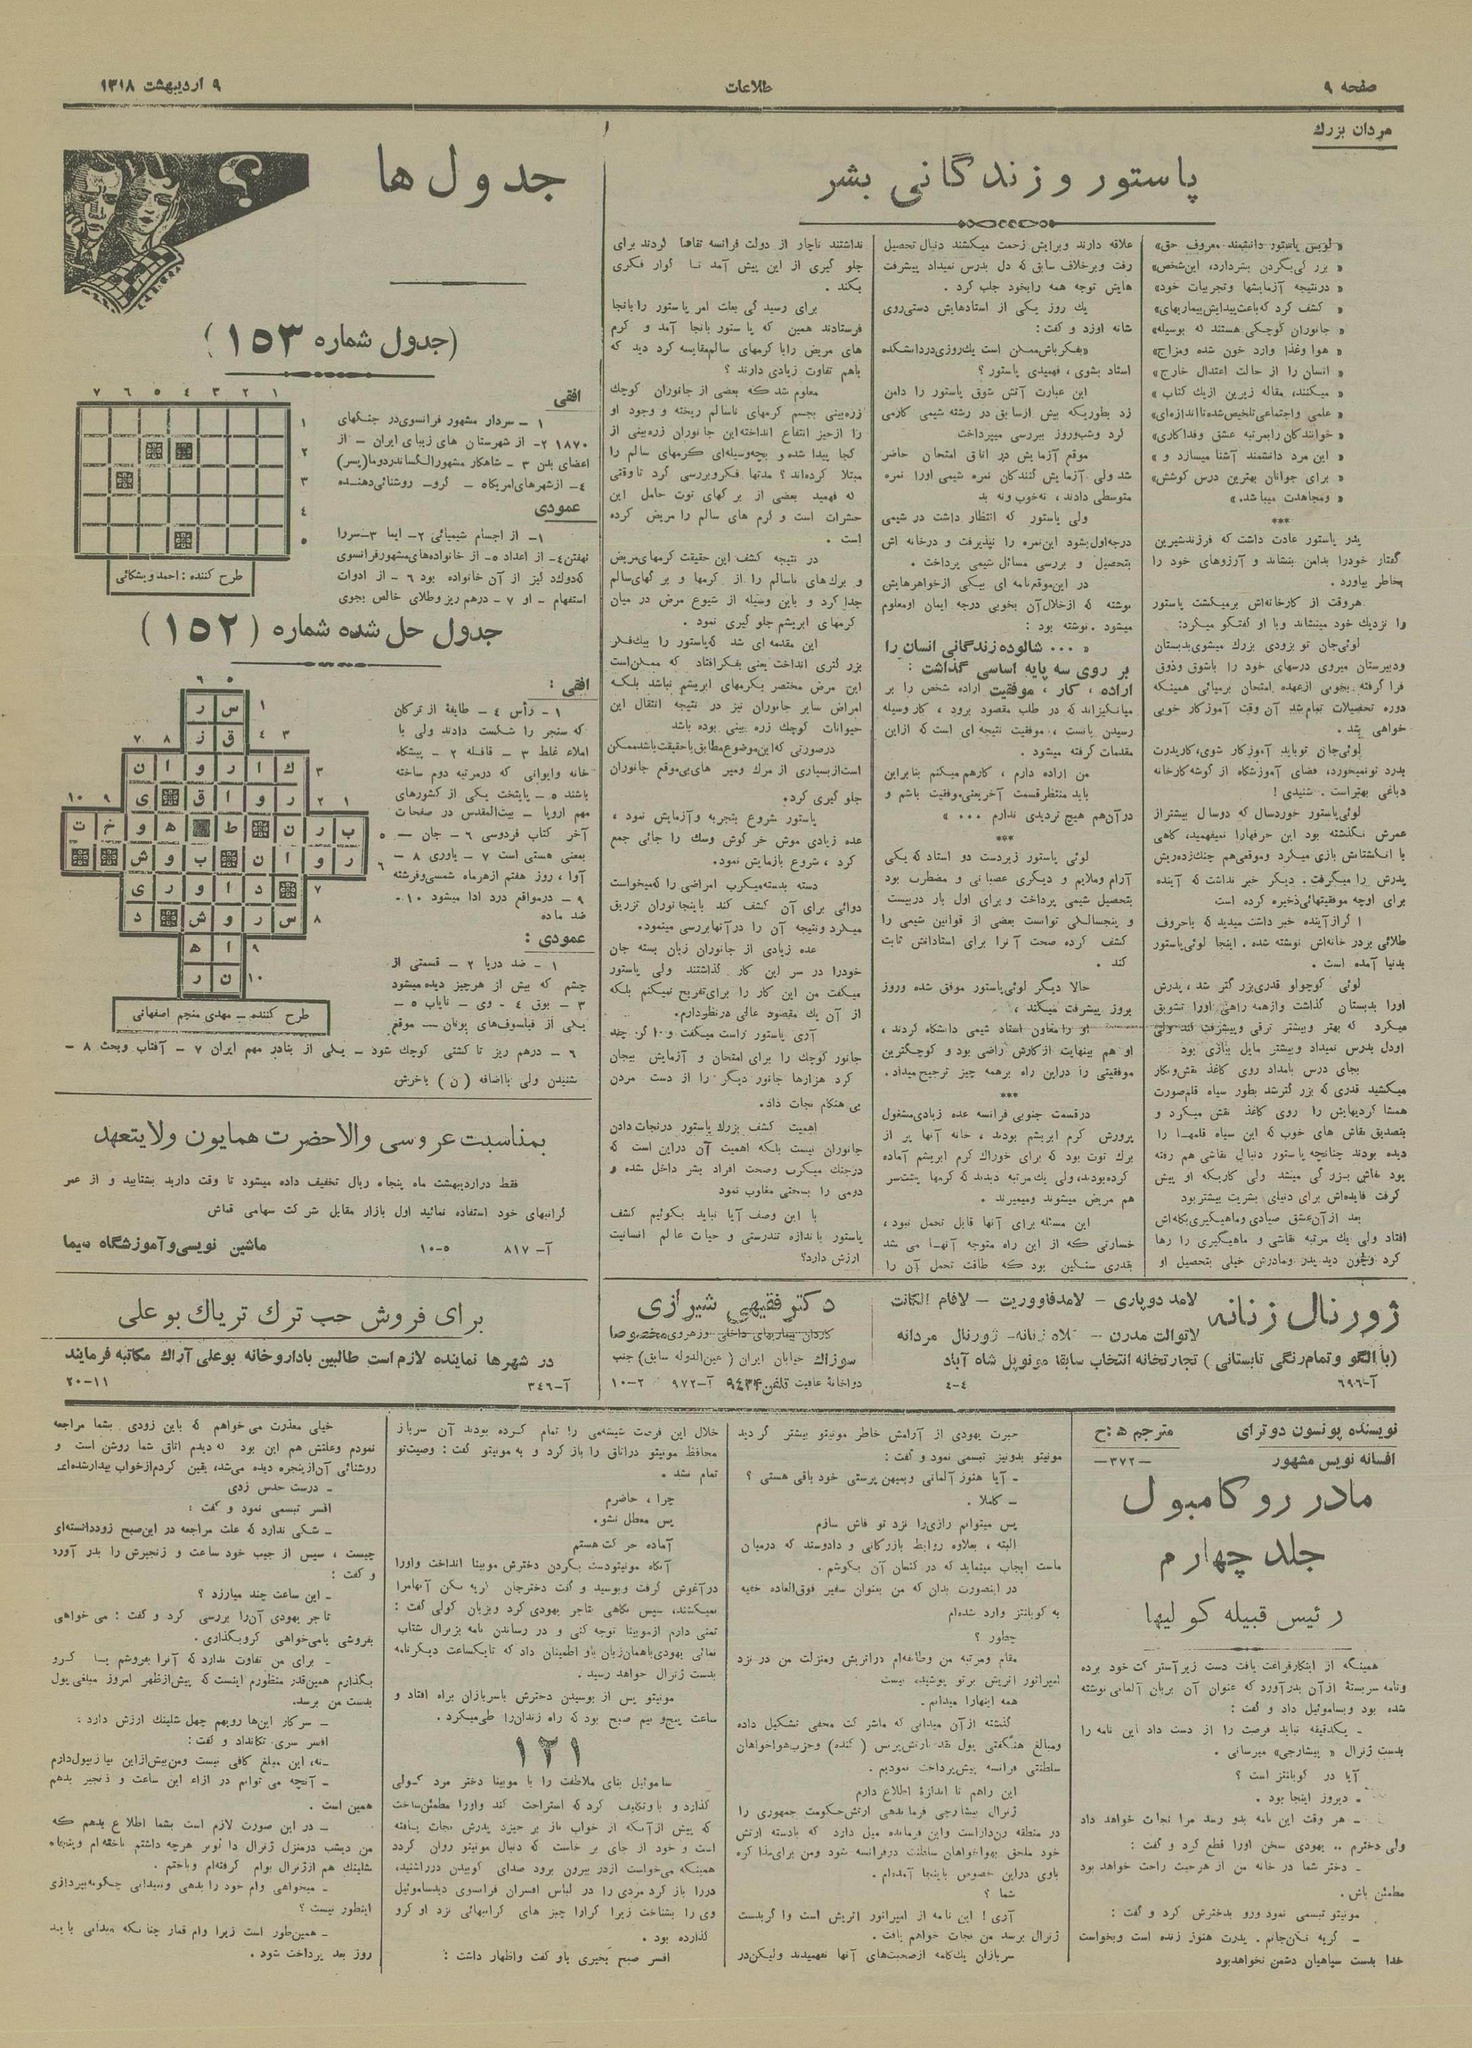 صفحه ۹
طلاعات
۹ اردیبهشت ۱۳۱۸
مردان بزرك
پاستور و زندگانی بشر
« لویس پاستور دانشمند معروف حق»
« بزرگی بگردن بشر دارد، این شخص»
« در نتیجه آزمایشها و تجربیات خود»
« کشف کرد که باعث پیدایش بیماریهای»
« جانوران کوچکی هستند که بوسیله»
« هوا وغذا وارد خون شده ومزاج»
« انسان را از حالت اعتدال خارج»
« میکنند، مقاله زیرین از یك کتاب »
« علمی واجتماعی تلخیص شده تا اندازه ای»
« خوانندگان را بمرتبه عشق وفداکاری»
« این مرد دانشمند آشنا میسازد و »
« برای جوانان بهترین درس کوشش»
« ومجاهدت میباشد.»
***
پدر پاستور عادت داشت که فرزند شیرین
گفتار خودرا بدامن بنشاند و آرزوهای خود را
بخاطر بیاورد .
هروقت از کارخانه‌اش برمیگشت پاستور
را نزدیك خود مینشاند وبا او گفتگو میکرد:
لوئی‌جان تو بزودی بزرك میشوی بدبستان
ودبیرستان میروی درسهای خود را باشوق وذوق
فرا گرفته بخوبی ازعهده امتحان برمیائی همینکه
دوره تحصیلات تمام شد آن وقت آموزگار خوبی
خواهی شد .
لوئی‌جان توباید آموزگار شوی، کار پدرت
بدرد تو نمیخورد، فضای آموزشگاه از گوشه کارخانه
دباغی بهتر است . شنیدی !
لوئی پاستور خوردسال که دوسال بیشتر از
عمرش نگذشته بود این حرفهارا نمیفهمید، گاهی
با انگشتانش بازی میکرد وموقعی هم چنك زده ریش
پدرش را میگرفت. دیگر خبر نداشت که آینده
برای اوچه موفقیتهائی ذخیره کرده است
اگر از آینده خبر داشت میدید که باحروف
طلائی بر در خانه‌اش نوشته شده . اینجا لوئی پاستور
بدنیا آمده است .
لوئی کوچولو قدری بزرگتر شد ، پدرش
اورا بدبستان گذاشت وازهمه راهی اورا تشویق
میکرد که بهتر وبیشتر ترقی وپیشرفت کند ولی
اودل بدرس نمیداد وبیشتر مایل ببازی بود
بجای درس بامداد روی کاغذ نقش ونگار
میکشید قدری که بزرگتر شد بطور سیاه قلم صورت
همشاگردیهایش را روی کاغذ نقش میکرد و
بتصدیق نقاش های خوب که این سیاه قلمها را
دیده بودند چنانچه پاستور دنبال نقاشی هم رفته
بود نقاش بزرگی میشد ولی کاریکه او پیش
گرفت فایده‌اش برای دنیای بشریت بیشتر بود
بعد از آن عشق صیادی وماهیگیری بکله‌اش
افتاد ولی یك مرتبه نقاشی و ماهیگیری را رها
کرد وچون دید پدر ومادرش خیلی بتحصیل او
علاقه دارند وبرایش زحمت میکشند دنبال تحصیل
رفت وبرخلاف سابق که دل بدرس نمیداد پیشرفت
هایش توجه همه را بخود جلب کرد .
یك روز یکی از استادهایش دستی روی
شانه اوزد و گفت :
«بفکر باش ممکن است یك روزی در دانشکده
استاد بشوی ، فهمیدی پاستور ؟
این عبارت آتش شوق پاستور را دامن
زد بطوریکه بیش از سابق در رشته شیمی کارمی
کرد وشب وروز ببررسی میپرداخت
موقع آزمایش در اتاق امتحان حاضر
شد ولی آزمایش کنندگان نمره شیمی اورا نمره
متوسطی دادند ، نه خوب ونه بد
ولی پاستور که انتظار داشت در شیمی
درجه اول بشود این نمره را نپذیرفت و درخانه اش
بتحصیل و بررسی مسائل شیمی پرداخت .
در این موقع نامه ای بیکی ازخواهرهایش
نوشته که ازخلال آن بخوبی درجه ایمان او معلوم
میشود . نوشته بود :
« ... شالوده زندگانی انسان را
بر روی سه پایه اساسی گذاشت :
اراده ، کار ، موفقیت اراده شخص را بر
میانگیزاند که در طلب مقصود برود ، کار وسیله
رسیدن بآنست ، موفقیت نتیجه ای است که ازاین
مقدمات گرفته میشود .
من اراده دارم ، کارهم میکنم بنابراین
باید منتظر قسمت آخر یعنی موفقیت باشم و
در آن هم هیچ تردیدی ندارم ... »
***
لوئی پاستور زیردست دو استاد که یکی
آرام وملایم و دیگری عصبانی و مضطرب بود
بتحصیل شیمی پرداخت و برای اول بار در بیست
و پنجسالگی توانست بعضی از قوانین شیمی را
کشف کرده صحت آنرا برای استادانش ثابت
کند .
حالا دیگر لوئی پاستور موفق شده وروز
بروز پیشرفت میکند ،
او را معاون استاد شیمی دانشگاه کردند ،
او هم بینهایت از کارش راضی بود و کوچکترین
موفقیتی را دراین راه برهمه چیز ترجیح میداد.
***
درقسمت جنوبی فرانسه عده زیادی مشغول
پرورش کرم ابریشم بودند ، خانه آنها پر از
برك توت بود که برای خوراك کرم ابریشم آماده
کرده بودند، ولی یك مرتبه دیدند که کرمها پشت سر
هم مریض میشوند ومیمیرند .
این مسئله برای آنها قابل تحمل نبود ،
خسارتی که از این راه متوجه آنها می شد
بقدری سنگین بود که طاقت تحمل آن را
نداشتند ناچار از دولت فرانسه تقاضا کردند برای
جلو گیری از این پیش آمد ناگوار فکری
بکند .
برای رسیدگی بعلت امر پاستور را بآنجا
فرستادند همین که پاستور بآنجا آمد و کرم
های مریض را با کرمهای سالم مقایسه کرد دید که
باهم تفاوت زیادی دارند ؟
معلوم شد که بعضی از جانوران کوچك
زره‌بینی بجسم کرمهای ناسالم ریخته و وجود او
را از حیز انتفاع انداخته این جانوران زره‌بینی از
کجا پیدا شده و بچه وسیله‌ای کرمهای سالم را
مبتلا کرده‌اند ؟ مدتها فکر وبررسی کرد تا وقتی
که فهمید بعضی از برگهای توت حامل این
حشرات است و کرم های سالم را مریض کرده
است .
در نتیجه کشف این حقیقت کرمهای مریض
و برك‌های ناسالم را از کرمها و برگهای سالم
جدا کرد و باین وسیله از شیوع مرض در میان
کرمهای ابریشم جلو گیری نمود .
این مقدمه‌ای شد که پاستور را بیك فکر
بزرگتری انداخت یعنی بفکر افتاد که ممکن است
این مرض مختصر بکرمهای ابریشم نباشد بلکه
امراض سایر جانوران نیز در نتیجه انتقال این
حیوانات کوچك زره بینی بوده باشد
درصورتی که این موضوع مطابق باحقیقت باشد ممکن
است از بسیاری از مرك ومیر های بی موقع جانوران
جلو گیری کرد.
پاستور شروع بتجربه وآزمایش نمود ،
عده زیادی موش خرگوش وسك را جائی جمع
کرد ، شروع بازمایش نمود.
دسته بدسته میکرب امراضی را که میخواست
دوائی برای آن کشف کند باینجانوران تزریق
میکرد ونتیجه آن را در آنها بررسی مینمود.
عده زیادی از جانوران زبان بسته جان
خودرا در سر این کار گذاشتند ولی پاستور
میگفت من این کار را برای تفریح نمیکنم بلکه
از آن یك مقصود عالی در نظر دارم.
آری پاستور راست میگفت و اگر چند
جانور کوچك را برای امتحان و آزمایش بیجان
کرد هزارها جانور دیگر را از دست مردن
بی هنگام نجات داد.
اهمیت کشف بزرك پاستور در نجات دادن
جانوران نیست بلکه اهمیت آن دراین است که
درجنك میکرب وصحت افراد بشر داخل شده و
دومی را بسختی مغلوب نمود
با این وصف آیا نباید بگوئیم کشف
پاستور باندازه تندرستی و حیات عالم انسانیت
ارزش دارد؟
جدول ها
؟
(جدول شماره ۱۵۳)
افقی
۱ – سردار مشهور فرانسوی در جنگهای
۱۸۷۰ ۲– از شهرستان های زیبای ایران – از
اعضای بدن ۳ – شاهکار مشهور الکساندردوما (پسر)
۴– از شهرهای امریکاه – گرو– روشنائی دهنده
عمودی
۱– از اجسام شیمیائی ۲– ایما ۳– سررا
نهفتن ۴– از اعداد ۵– از خانواده‌های مشهور فرانسوی
که دوك دگیز از آن خانواده بود ۶ – از ادوات
استفهام – او ۷ – درهم ریز وطلای خالص بجوی
۱ ۲ ۳ ۴ ۵ ۶ ۷
۱
۲
۳
۴
۵
طرح کننده : احمد ویشکائی
جدول حل شده شماره (۱۵۲)
افقی :
۱ – رأس ۴ – طایفهٔ از ترکان
که سنجر را شکست دادند ولی با
املاء غلط ۳ – قافله ۲ – پیشگاه
خانه وایوانی که درمرتبه دوم ساخته
باشند ۵ – پایتخت یکی از کشورهای
مهم اروپا – بیت‌المقدس در صفحات
آخر کتاب فردوسی ۶ – جان –
بمعنی هستی است ۷ – یاوری ۸ –
آوا ، روز هفتم از هرماه شمسی وفرشته
۹ – درمواقع درد ادا میشود ۱۰–
ضد ماده
عمودی :
۱ – ضد دریا ۲ – قسمتی از
چشم که بیش از هر چیز دیده میشود
۳ – بوق ۴ – وی – نایاب ۵ –
یکی از فیلسوف‌های یونان – موقع
۶ – درهم ریز تا کشتی کوچك شود – یکی از بنادر مهم ایران ۷ – آفتاب وبحث ۸ –
شنیدن ولی بااضافه (ن) بآخرش
۵ ۶
س ر ۱
۷ ۸ ق ز ۴ ۳
ك ا ر و ا ن ۳
۱۰ ۹ ر و ا ق ی ۲ ۱
ب ر ن ط ه و خ ت ۵
ر و ا ن ب و ش ۶
د ا و ر ی ۷
س ر و ش د ۸
ا ه ۹
ن ر ۱۰
طرح کننده – مهدی منجم اصفهانی
بمناسبت عروسی والاحضرت همایون ولایتعهد
فقط در اردیبهشت ماه پنجاه ریال تخفیف داده میشود تا وقت دارید بشتابید و از عمر
گرانبهای خود استفاده نمائید اول بازار مقابل شرکت سهامی قماش
ماشین نویسی و آموزشگاه سیما
آ– ۸۱۷
۵–۱۰
برای فروش حب ترك تریاك بوعلی
در شهرها نماینده لازم است طالبین باداروخانه بوعلی آراك مکاتبه فرمایند
آ–۳۴۶
۱۱–۲۰
دکتر فقیهی شیرازی
کاردان بیماریهای داخلی وزهروی مخصوصا
سوزاك خیابان ایران (عین‌الدوله سابق) جنب
دواخانهٔ عافیت تلفن ۹۴۳۴ آ–۹۷۲ ۲–۱۰
ژورنال زنانه
لامد دوپاری – لامد فاووریت – لافام الگانت
لاتوالت مدرن – کلاه زنانه– ژورنال مردانه
(با الگو و تمام رنگی تابستانی) تجارتخانه انتخاب سابقا مونوپل شاه آباد
آ–۶۹۶
۴–۴
نویسنده پونسون دوترای
افسانه نویس مشهور
مترجم ه : ح
–۳۷۲–
مادر روکامبول
جلد چهارم
رئیس قبیله کولیها
همینکه از اینکار فراغت یافت دست زیر آستر کت خود برده
ونامه سربستهٔ از آن بدر آورد که عنوان آن بزبان آلمانی نوشته
شده بود وبساموئیل داد و گفت :
– یکدقیقه نباید فرصت را از دست داد این نامه را
بدست ژنرال « بیشارجی» میرسانی .
آیا در کوبلانتز است ؟
– دیروز اینجا بود .
– هر وقت این نامه بدو رسد مرا نجات خواهد داد
ولی دخترم .. یهودی سخن اورا قطع کرد و گفت :
– دختر شما در خانه من از هرحیث راحت خواهد بود
مطمئن باش .
مونیتو تبسمی نمود ورو بدخترش کرد و گفت :
– گریه نکن جانم . پدرت هنوز زنده است وبخواست
خدا بدست سپاهیان دشمن نخواهد بود
حیرت یهودی از آرامش خاطر مونیتو بیشتر گردید
مونیتو بدونیز تبسمی نمود و گفت :
– آیا هنوز آلمانی ومیهن پرستی خود باقی هستی ؟
– کاملا .
پس میتوانم رازی را نزد تو فاش سازم
البته ، بعلاوه روابط بازرگانی و دادوستد که درمیان
ماست ایجاب مینماید که در کتمان آن بکوشم .
در اینصورت بدان که من بعنوان سفیر فوق‌العاده خفیه
به کوبلانتز وارد شده‌ام
چطور ؟
مقام ومرتبه من وظایفه‌ام دراتریش ومنزلت من در نزد
امپراتور اتریش برتو پوشیده نیست
همه اینهارا میدانم .
گذشته از آن میدانی که ما شرکت مخفی تشکیل داده
ومبالغ هنگفتی پول نقد بارتش پرنس (کنده) وحزب هواخواهان
سلطنتی فرانسه پیش پرداخت نمودیم .
این راهم تا اندازهٔ اطلاع دارم
ژنرال بیشارجی فرماندهی ارتش حکومت جمهوری را
در منطقه رن داراست واین فرمانده میل دارد که بادسته ارتش
خود ملحق بهواخواهان سلطنت درفرانسه شود ومن برای مذاکره
باوی دراین خصوص باینجا آمده‌ام .
شما ؟
آری ! این نامه از امپراتور اتریش است واگر بدست
ژنرال برسد من نجات خواهم یافت .
سربازان یك کلمه ازصحبت‌های آنها نفهمیدند ولیکن در
خلال این فرصت شیشه‌می را تمام کرده بودند آن سرباز
محافظ مونیتو دراتاق را باز کرد و به مونیتو گفت : وصیت تو
تمام نشد .
چرا ، حاضرم
پس معطل نشو.
آماده حرکت هستم
آنگاه مونیتو دست بگردن دخترش موبینا انداخت واورا
در آغوش گرفت وبوسید و گفت دخترجان گریه نکن آنها مرا
نمیکشند، سپس نگاهی بتاجر یهودی کرد وبزبان کولی گفت :
تمنی دارم ازموبینا توجه کنی و در رساندن نامه بژنرال شتاب
نمائی یهودی باهمان زبان باو اطمینان داد که تا یکساعت دیگر نامه
بدست ژنرال خواهد رسید .
مونیتو پس از بوسیدن دخترش باسربازان براه افتاد و
ساعت پنج و نیم صبح بود که راه زندان را طی میکرد .
۱۲۱
ساموئیل بنای ملاطفت را با موبینا دختر مرد کولی
گذارد و باو تکلیف کرد که استراحت کند واورا مطمئن ساخت
که پیش از آنکه از خواب ناز بر خیزد پدرش نجات یافته
است و خود از جای بر خاست که دنبال مونیتو روان گردد
همینکه می‌خواست ازدر بیرون برود صدای کوبیدن درراشنید،
دررا باز کرد مردی را در لباس افسران فرانسوی دید ساموئیل
وی را بشناخت زیرا کرارا چیز های گرانبهائی نزد او گرو
گذارده بود .
افسر صبح بخیری باو گفت واظهار داشت :
خیلی معذرت می‌خواهم که باین زودی بشما مراجعه
نمودم وعلتش هم این بود که دیدم اتاق شما روشن است و
روشنائی آن ازپنجره دیده می‌شد، یقین کردم ازخواب بیدار شده‌اید
– درست حدس زدی
افسر تبسمی نمود و گفت :
– شکی ندارد که علت مراجعه در این صبح زود دانسته‌ای
چیست ، سپس از جیب خود ساعت و زنجیرش را بدر آورد
و گفت :
– این ساعت چند میارزد ؟
تاجر یهودی آن‌را بررسی کرد و گفت : می خواهی
بفروشی یامی‌خواهی گروبگذاری .
– برای من تفاوت ندارد که آنرا بفروشم یا گرو
بگذارم همین‌قدر منظورم اینست که پیش‌ازظهر امروز مبلغی پول
بدست من برسد.
– سرکار این‌ها رویهم چهل شلینك ارزش دارد .
افسر سری تکانداد و گفت :
–نه، این مبلغ کافی نیست ومن بیش‌از این نیاز بپول دارم
– آنچه می توانم در ازاء این ساعت و زنجیر بدهم
همین است .
– در این صورت لازم است بشما اطلاع بدهم که
من دیشب درمنزل ژنرال دا کوبر هرچه داشتم باخته‌ام وپنجاه
شلینك هم ازژنرال بوام گرفته‌ام وباختم .
– میخواهی وام خود را بدهی ونمیدانی چگونه بپردازی
اینطور نیست ؟
– همین‌طور است زیرا وام قمار چنانکه میدانی باید
روز بعد پرداخت شود .